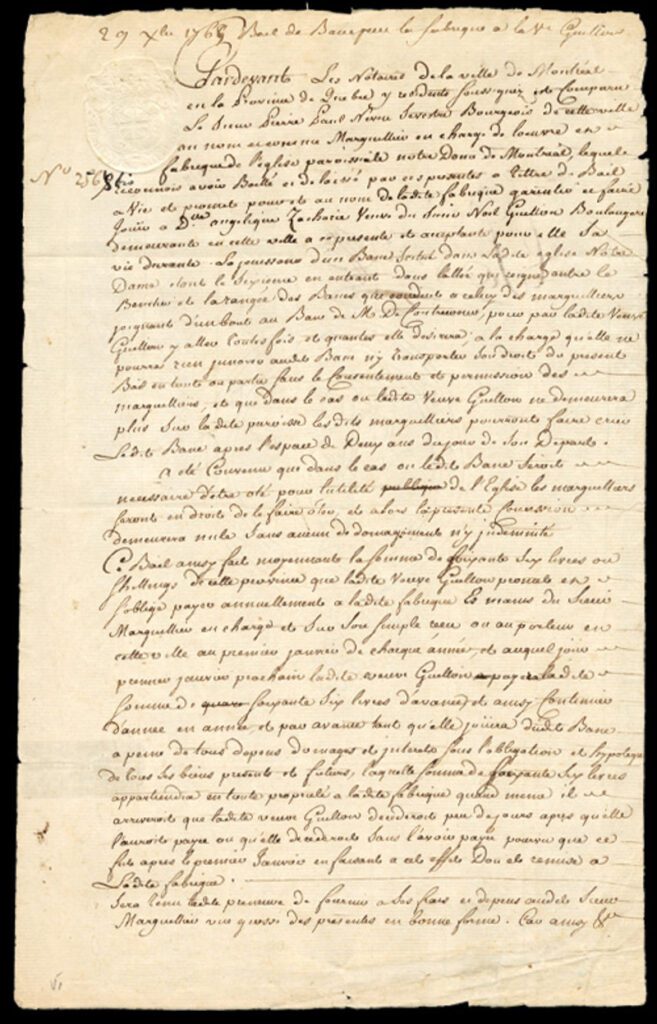 29 Xbre 176 Bail de Banc par la fabrique a la Ve Guillon
Pardevant Les Notaires de la ville de Montréal
en la Province de Quebec y residents soussignez fut Comparu
Le Sieur Pierre Paul Neveu Sevestre Bourgeois de cette ville
au nom et comme Marguillier en charge de l'œuvre et
fabrique de l'église paroissiale notre Dame de Montréal, lequel
No 256
reconnois avoir Baillé et delaissé par ces presentes a tittre de Bail
a Vie et promet pour et au nom de ladite fabrique garentir et faire
Jouir a Dme angelique Zacharie Veuve du Sieur Noel Guillon Boulanger
demeurante en cette ville a ce presente et acceptante pour elle Sa
vie durante. La jouissance d'un Banc scitué dans Ladite eglise Notre
Dame etant le Sixieme en entrant dans l'allée qui regne entre le
Benitier et la rangée des Bancs qui conduit a celuy des marguilliers
joignant d'un bout au Banc de M. De Contrecœur, pour par ladite Veuve
Guillon y aller toutes fois et quantes elle desirera; a la charge qu'elle ne
pourra rien innover audit Banc n'y transporter son droit du present
Bail en tout ou partie sans le Consentement et permission des
marguilliers, et que dans le cas ou ladite Veuve Guillon ne demeurera
plus Sur ladite paroisse les dits marguilliers pourront faire crier
Ledit Banc après l'espace de Deux ans du jour de Son Départ.
a été Convenu que dans le cas ou ledit Banc Seroit
necessaire d'être oté pour l'utilité publique de l'Eglise les marguilliers
seront en droits de le faire oter, et alors la presente Concession
demeurera nulle Sans aucun dedomagement n'y indemnité
Ce Bail ainsy fait moyennant la somme de soixante Six livres ou
Shillings de cette province que ladite Veuve Guillon promet et
s'oblige payer annuellement a ladite fabrique Es mains du Sieur
Marguillier en charge et Sur Son simple recu ou au porteur en
cette ville au premier janvier de chaque année et auquel jour
premier janvier prochain ladite veuve Guillon payera ladite
Somme de Soixante Six livres d'avance, et ainsy Continuer
d'année en année et par avance tant qu'elle jouira dudit Banc
a peine de tous depens domages et interets sous l'obligation et hypoteque
de tous Ses biens presents et futurs, laquelle somme de soixante Six livres
appartiendra en toute propriété a ladite fabrique quand meme il
arriveroit que ladite veuve Guillon decederoit peu de jours après qu'elle
l'auroit payée ou qu'elle decederoit Sans l'avoir payée pourvu que ce
fut après le premier Janvier en faisant a cet effet Don et remise a
Ladite fabrique.
Sera tenu ladite preneuse de fournir a Ses frais et depens audit Sieur
Marguillier une grosse des présentes en bonne forme. Car ainsy &c